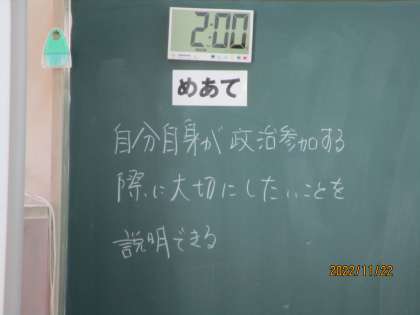 2:00
めあて
自分自身が政治参加する
際に大切にしたいことを
説明できる
2022/11/22